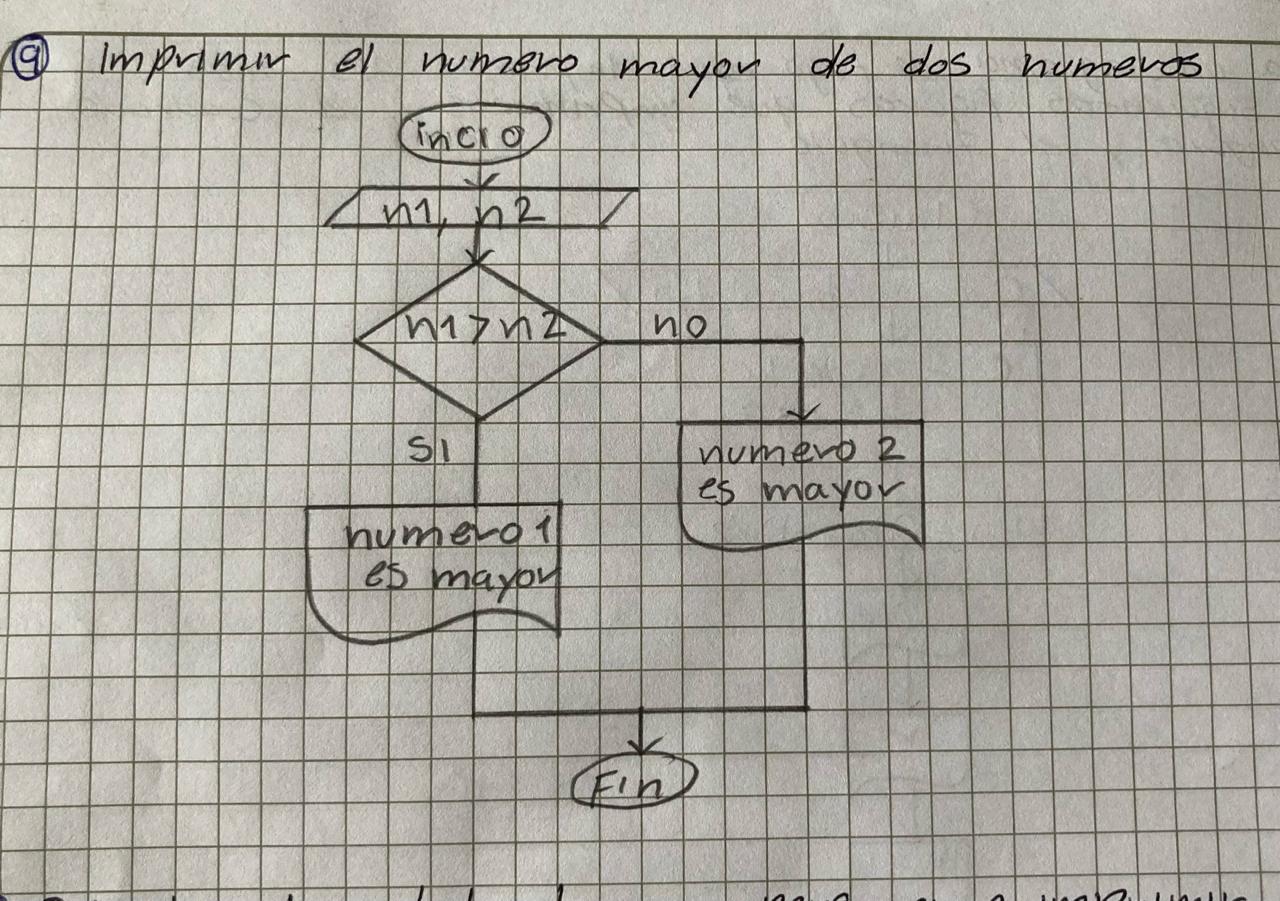 9 Imprimir el numero mayor de dos numeros
incio
n1, n2
n1 > n2
no
SI
numero 2
es mayor
numero 1
es mayor
Fin